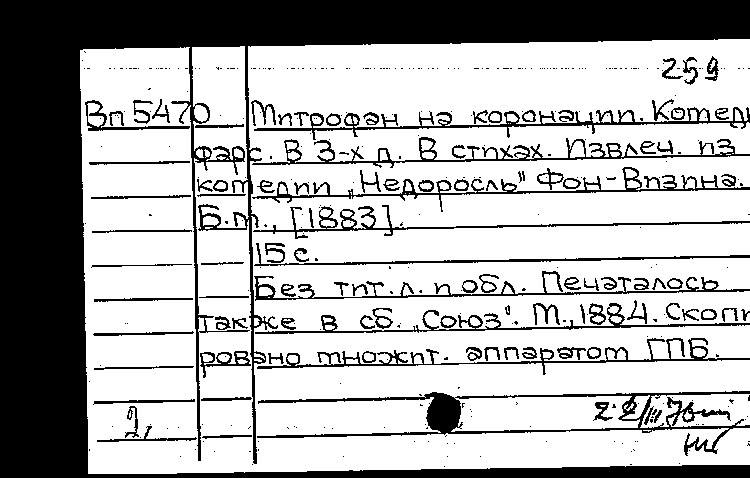 259
Вп 5470 Митрофан на коронации. Комеди
фарс. В 3-х д. В стихах. Извлеч. из
комедии „Недоросль" Фон-Визина.
Б.м., [1883].
15 с.
Без тит. л. и обл. Печаталось
также в сб. „Союз". М., 1884. Скопи
ровано множит. аппаратом ГПБ.
2,